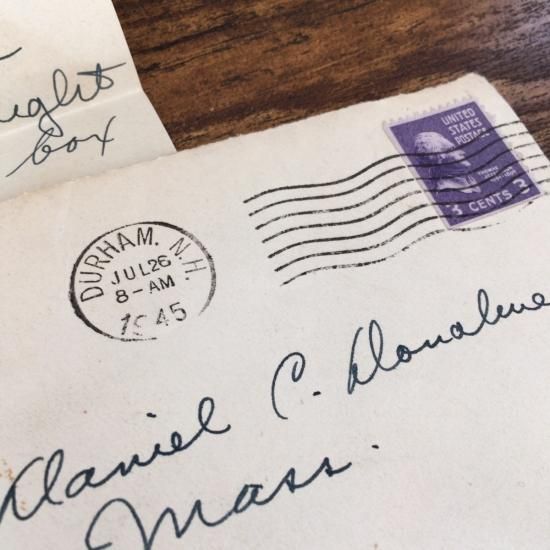 Tught
box
UNITED
STATES
POSTAGE
THOMAS
JEFFERSON
3 CENTS 3
DURHAM. N.H.
JUL 26
8-AM
1945
Daniel C. Donahue
Mass.